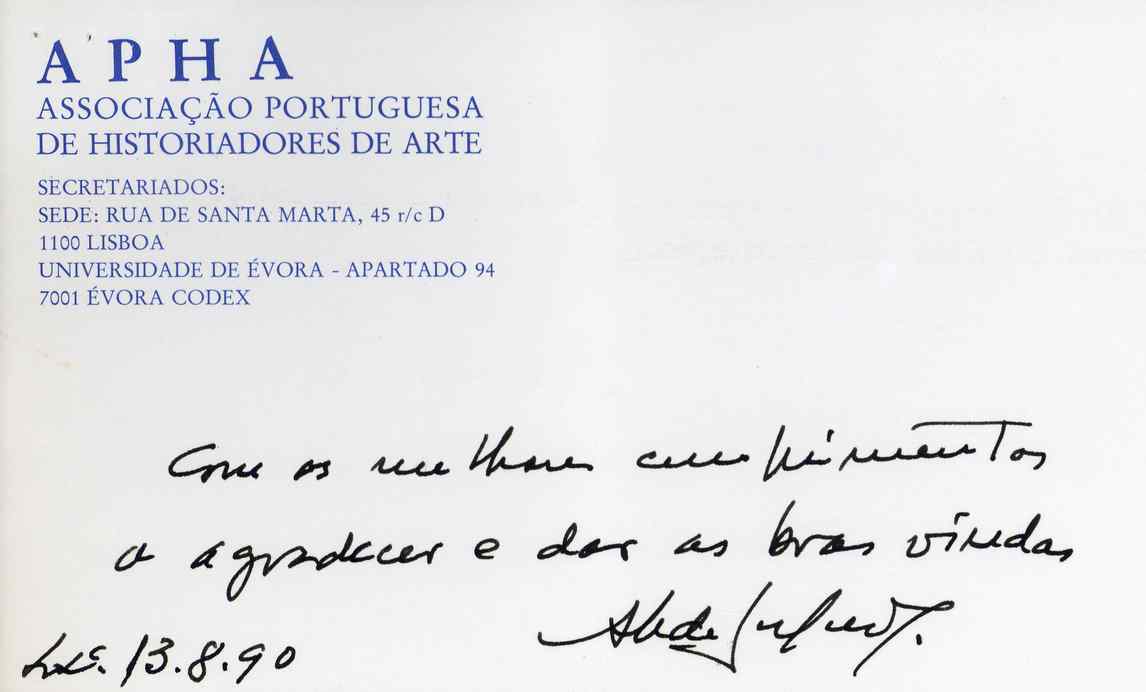 A P H A
ASSOCIAÇÃO PORTUGUESA
DE HISTORIADORES DE ARTE
SECRETARIADOS:
SEDE: RUA DE SANTA MARTA, 45 r/c D
1100 LISBOA
UNIVERSIDADE DE ÉVORA - APARTADO 94
7001 ÉVORA CODEX
Com os melhores cumprimentos
a agradecer e dar as boas vindas
Lxª. 13.8.90